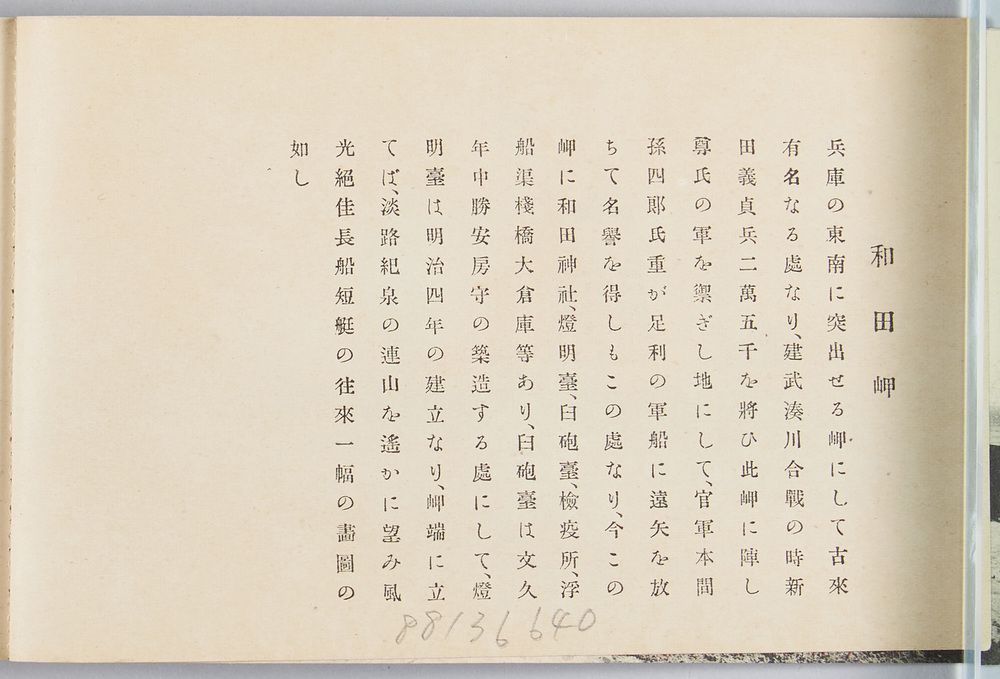 和田岬
兵庫の東南に突出せる岬にして古來
有名なる處なり、建武湊川合戰の時新
田義貞兵二萬五千を將ひ此岬に陣し
尊氏の軍を禦ぎし地にして、官軍本間
孫四郎氏重が足利の軍船に遠矢を放
ちて名譽を得しもこの處なり、今この
岬に和田神社、燈明臺、臼砲臺、檢疫所、浮
船渠棧橋大倉庫等あり、臼砲臺は文久
年中勝安房守の築造する處にして、燈
明臺は明治四年の建立なり、岬端に立
てば、淡路紀泉の連山を遙かに望み風
光絕佳長船短艇の往來一幅の畵圖の
如し
88136640